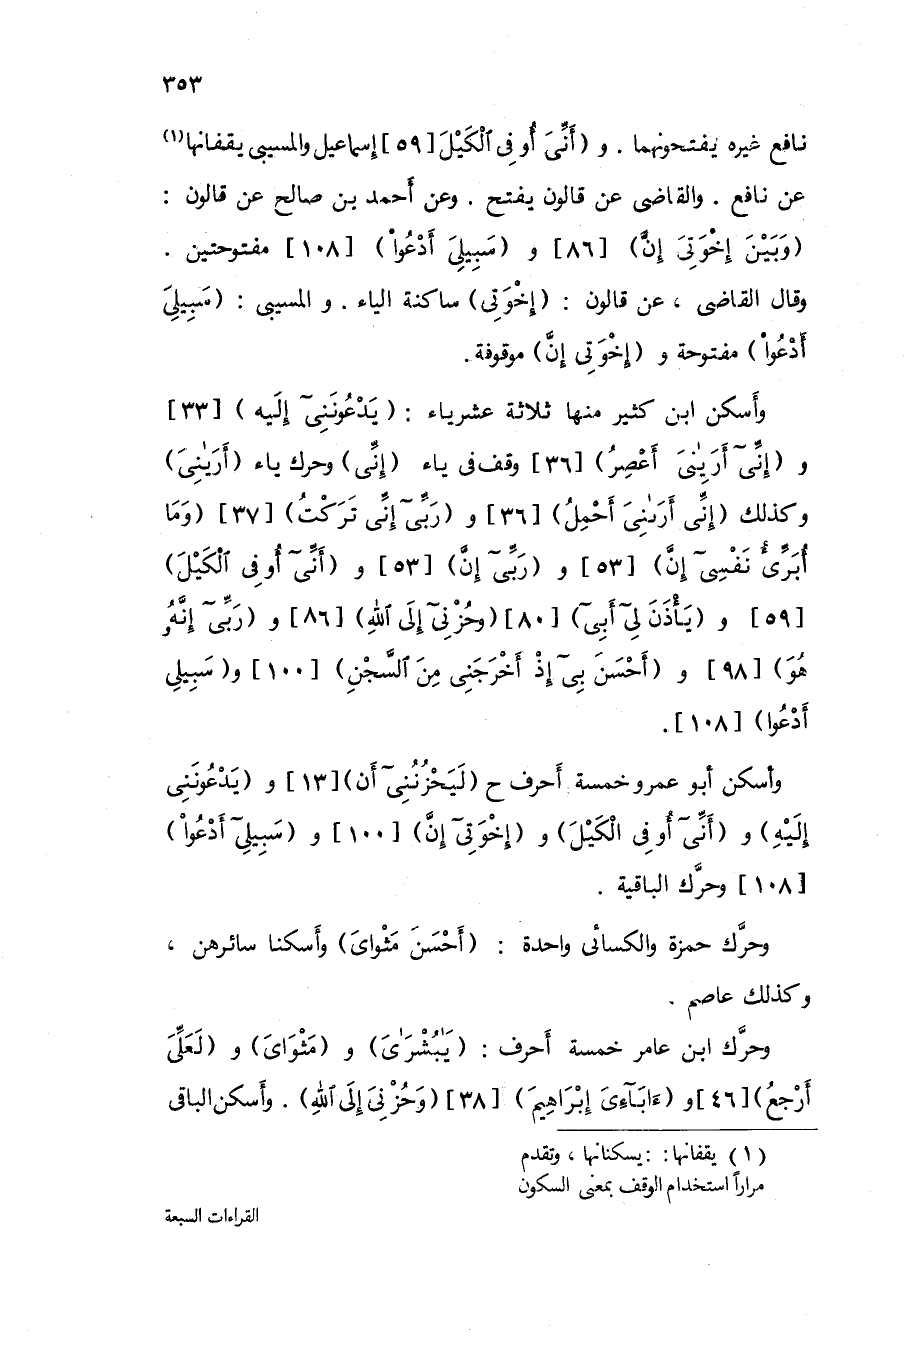 ٣٥٣
نافع غيره يفتحونهما . و (أَنِّىَ أُوفِى ٱلْكَيْلَ [٥٩] إسماعيل والمسيبى يقفانها(١)
عن نافع . والقاضى عن قالون يفتح . وعن أحمد بن صالح عن قالون :
(وَبَيْنَ إِخْوَتِىَ إِنَّ) [٨٦] و (سَبِيلِىَ أَدْعُواْ) [١٠٨] مفتوحتين .
وقال القاضى ، عن قالون : (إِخْوَتِى) ساكنة الياء . و المسيبى : (سَبِيلِىَ
أَدْعُواْ) مفتوحة و (إِخْوَتِى إِنَّ) موقوفة .
وأَسكن ابن كثير منها ثلاثة عشرياء : (يَدْعُونَنِىٓ إِلَيه) [٣٣]
و (إِنِّىٓ أَرَيٰنِىَ أَعْصِرُ) [٣٦] وقف فى ياء (إِنِّى) وحرك ياء (أَرَيٰنِىَ)
وكذلك (إِنِّى أَرَىٰنِىَ أَحْمِلُ) [٣٦] و (رَبِّىٓ إِنِّى تَرَكْتُ) [٣٧] (وَمَا
أُبَرِّئُ نَفْسِىٓ إِنَّ) [٥٣] و (رَبِّىٓ إِنَّ) [٥٣] و (أَنِّىٓ أُوفِى ٱلْكَيْلَ)
[٥٩] و (يَأْذَنَ لِىٓ أَبِىٓ) [٨٠] (وحُزْنِىٓ إِلَى ٱللهِ) [٨٦] و (رَبِّىٓ إِنَّهُۥ
هُوَ) [٩٨] و (أَحْسَنَ بِىٓ إِذْ أَخْرَجَنِى مِنَ ٱلسِّجْنِ) [١٠٠] و(سَبِيلِى
أَدْعُوا) [١٠٨].
وأسكن أبو عمرو خمسة أحرف ح (لَيَحْزُنُنِىٓ أَن) [١٣] و (يَدْعُونَنِى
إِلَيْهِ) و (أَنِّىٓ أُوفِى الْكَيْلَ) و (إِخْوَتِىٓ إِنَّ) [١٠٠] و (سَبِيلِىٓ أَدْعُواْ)
[١٠٨] وحرَّك الباقية .
وحرَّك حمزة والكسائى واحدة : (أَحْسَنَ مَثْواىَ) وأَسكنا سائرهن ،
وكذلك عاصم .
وحرَّك ابن عامر خمسة أَحرف : (يَٰبُشْرَىٰىَ) و (مَثْوَاىَ) و (لَعَلِّىَ
أَرْجِعُ) [٤٦] و (ءَابَآءِىَ إِبْرَاهِيمَ) [٣٨] (وَحُزْنِىَ إِلَى ٱللهِ) . وأَسكن الباقى
(١) يقفانها : : يسكنانها ، وتقدم
مراراً استخدام الوقف بمعنى السكون
القراءات السبعة